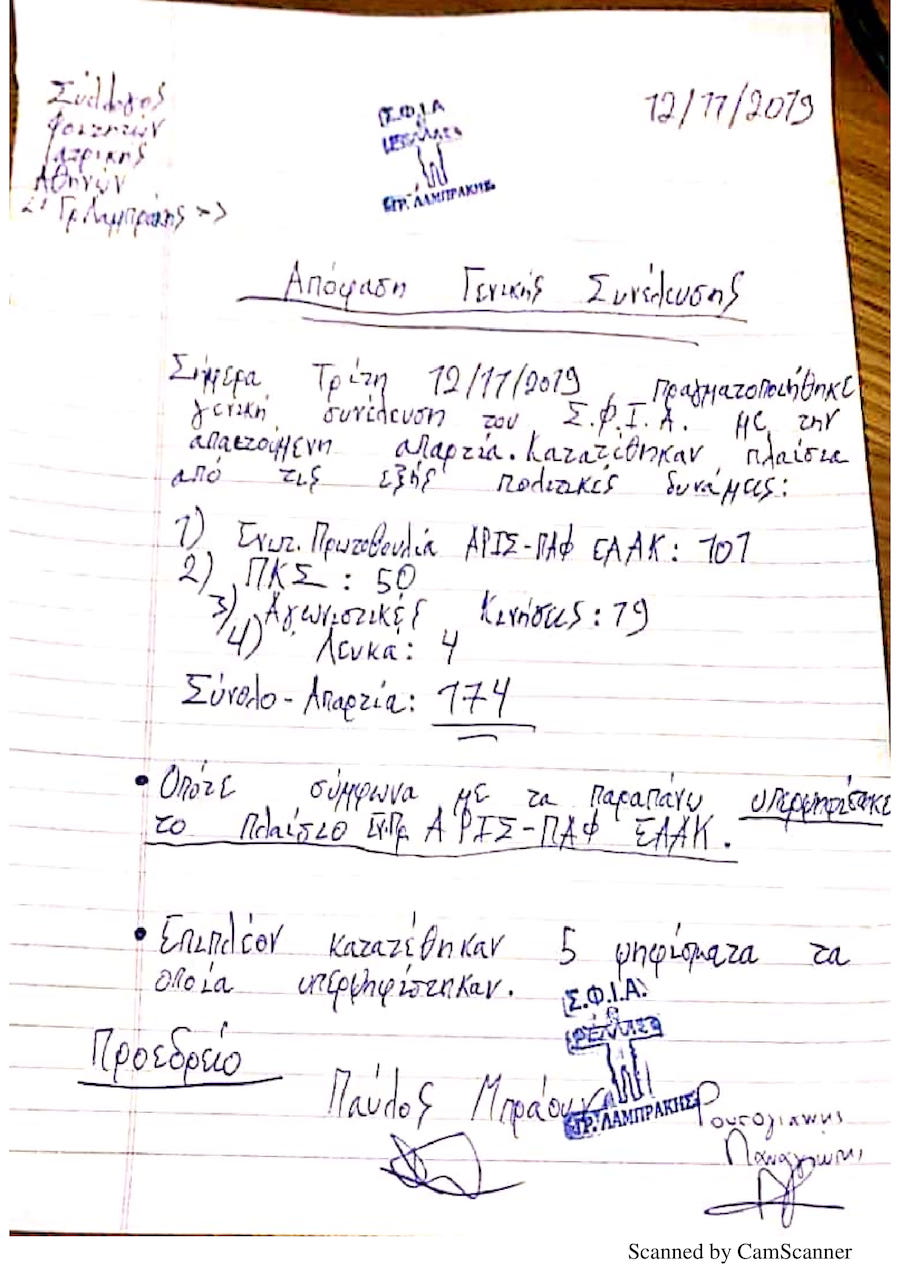 Σύλλογος
Φοιτητών
Ιατρικής
Αθηνών
<< Γρ. Λαμπράκης >>
12/11/2019
Σ.Φ.Ι.Α
ΓΡ. ΛΑΜΠΡΑΚΗΣ
Απόφαση Γενικής Συνέλευσης
Σήμερα Τρίτη 12/11/2019 πραγματοποιήθηκε
γενική συνέλευση του Σ.Φ.Ι.Α. με την
απαιτούμενη απαρτία. Κατατέθηκαν πλαίσια
από τις εξής πολιτικές δυνάμεις:
1) Ενωτ. Πρωτοβουλία ΑΡΙΣ-ΠΑΦ ΕΑΑΚ: 101
2) ΠΚΣ : 50
3) Αγωνιστικές Κινήσεις : 19
4) Λευκά: 4
Σύνολο - Απαρτία: 174
• Οπότε σύμφωνα με τα παραπάνω υπερψηφίστηκε
το πλαίσιο Εν.Πρ ΑΡΙΣ-ΠΑΦ ΕΑΑΚ.
• Επιπλέον κατατέθηκαν 5 ψηφίσματα τα
οποία υπερψηφίστηκαν.
Σ.Φ.Ι.Α.
ΓΡ. ΛΑΜΠΡΑΚΗΣ
Προεδρείο
Παύλος Μπράουν
Scanned by CamScanner